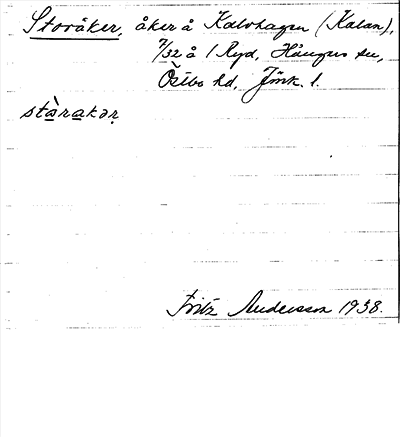 Storåker, åker å Kalvhagen (Kalan),
7/32 å 1 Ryd, Hångers sn,
Östbo hd, Jönk. l.
stὰrakər
Fritz Andersson 1938.